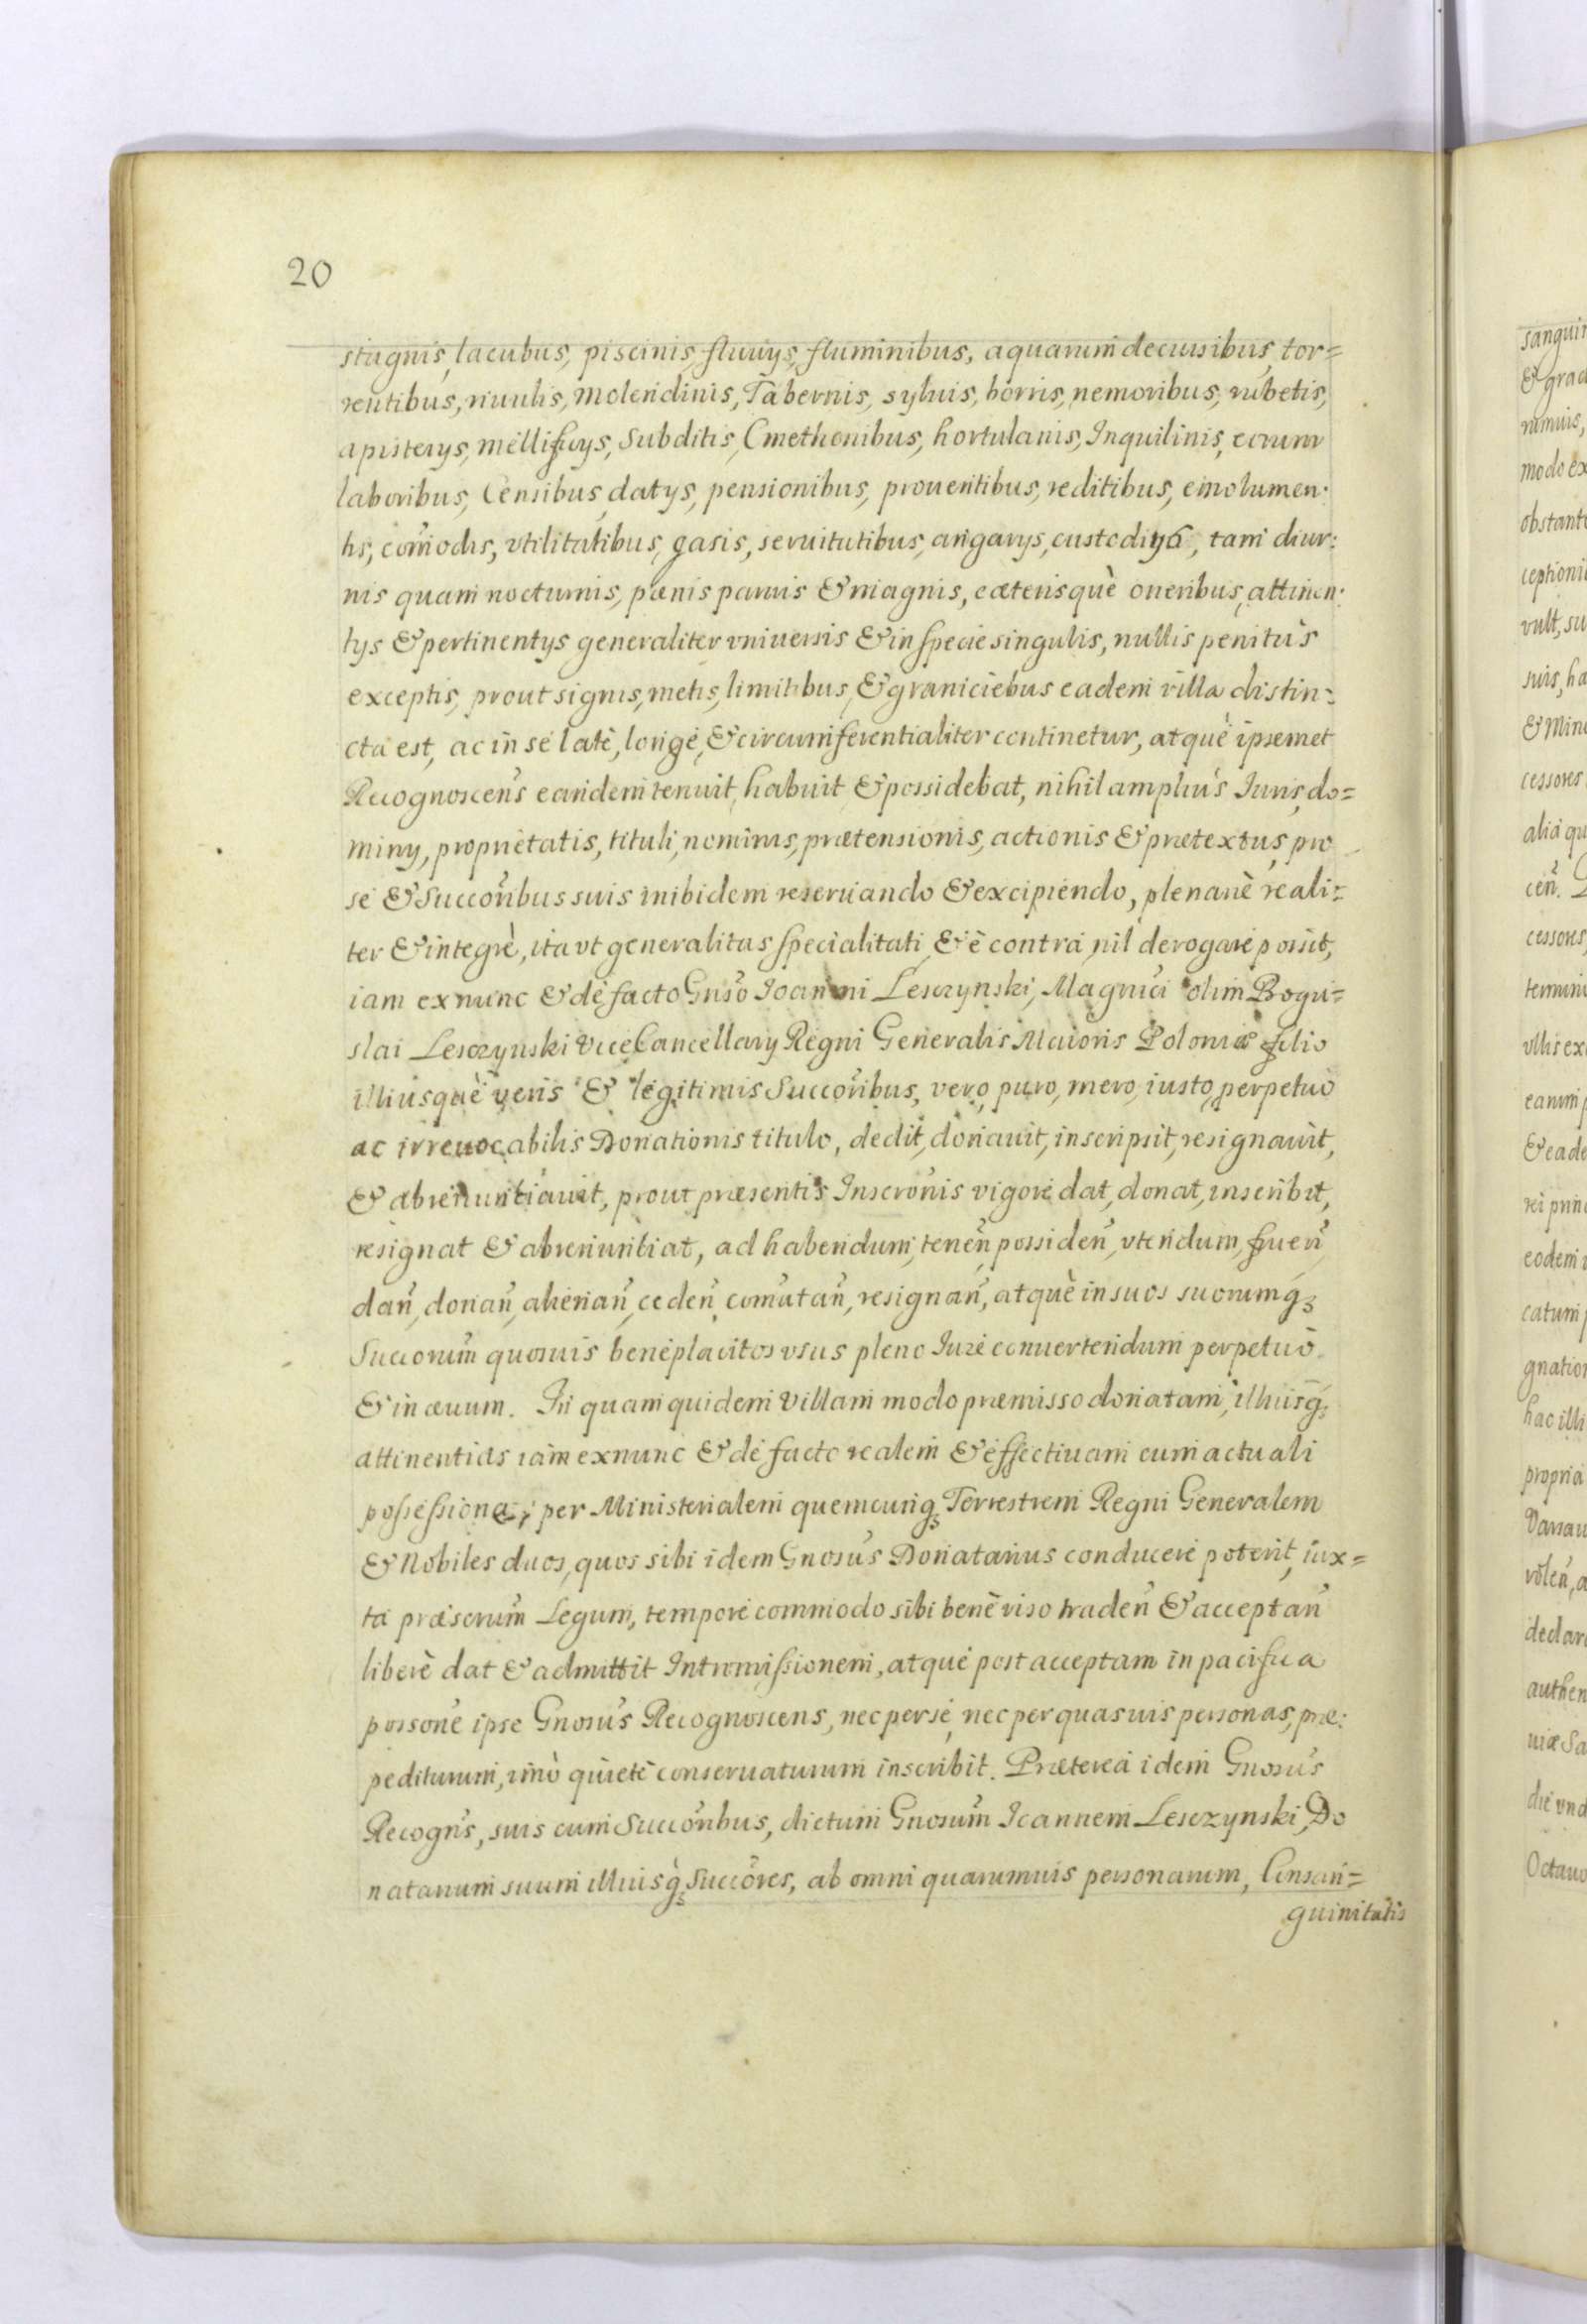 20
stagnis, lacubus, piscinis, fluuijs, fluminibus, aquarum decursibus, tor=
rentibus, riuulis, molendinis, Tabernis, syluis, borris, nemoribus, rubetis,
apisterijs, mellificijs, Subditis, Cmethonibus, hortulanis, Inquilinis, eorum
laboribus, Censibus, datijs, pensionibus, prouentibus, reditibus, emolumen:
tis, com̃odis, vtilitatibus, gasis, seruitutibus, angarijs, custodijs, tam diur:
nis quam nocturnis, pænis paruis & magnis, cæterisquè oneribus, attinen:
tijs & pertinentijs generaliter vniuersis & in specie singulis, nullis penitus
exceptis, prout signis, metis, limitibus, & graniciebus eadem villa distin:
cta est, ac in se latè, longè, & circumferentialiter continetur, atquè ipsemet
Recognoscens eandem tenuit, habuit & possidebat, nihil amplius Iuris, do=
minij, proprietatis, tituli, nominis, prætensionis, actionis & prætextus, pro
se & Succor̃ibus suis inibidem reseruando & excipiendo, plenariè reali:
ter & integrè, ita vt generalitas specialitati, & è contra nil derogare possit,
iam ex nunc & de facto Gns̃o Ioanni Lesczynski, Magnici olim Bogu=
slai Lesczynski ViceCancellarij Regni Generalis Maioris Poloniæ filio
illiusquè veris & legitimis Succor̃ibus, vero, puro, mero, iusto, perpetuo
ac irreuocabilis Donationis titulo, dedit, donauit, inscripsit, resignauit,
& abrenuntiauit, prout præsentis Inscron̄is vigore dat, donat, inscribit,
resignat & abrenuntiat, ad habendum, teneñ, possideñ, vtendum, frueñ
dañ, donañ, alienañ, cedeñ, com̃utañ, resignañ, atquè in suos suorumq̃ꝫ
Succorum̃ quosuis beneplacitos vsus pleno Iure conuertendum perpetuò
& in æuum. In quam quidem Villam modo præmisso donatam, illiusq̃ꝫ
attinentias iam ex nunc & de facto realem & effectiuam cum actuali
possessione, per Ministerialem quemcunq̨ Terrestrem Regni Generalem
& Nobiles duos, quos sibi idem Gnosus̃ Donatarius conducere poterit, iux=
ta præscrum̃ Legum, tempore commodo sibi benè viso tradeñ & acceptañ
liberè dat & admittit Intromissionem, atque post acceptam in pacifica
possone ipse Gnosus̃ Recognoscens, nec per se, nec per quasuis personas, præ:
pediturum, imò quietè conseruaturum inscribit. Præterea idem Gnosus̃
Recogns̃, suis cum Succor̃ibus, dictum Gnosum̃ Ioannem Lesczynski, Do
natarium suum illiusq̀ꝫ Succor̃es, ab omni quarumuis personarum, Consan=
guinitatis